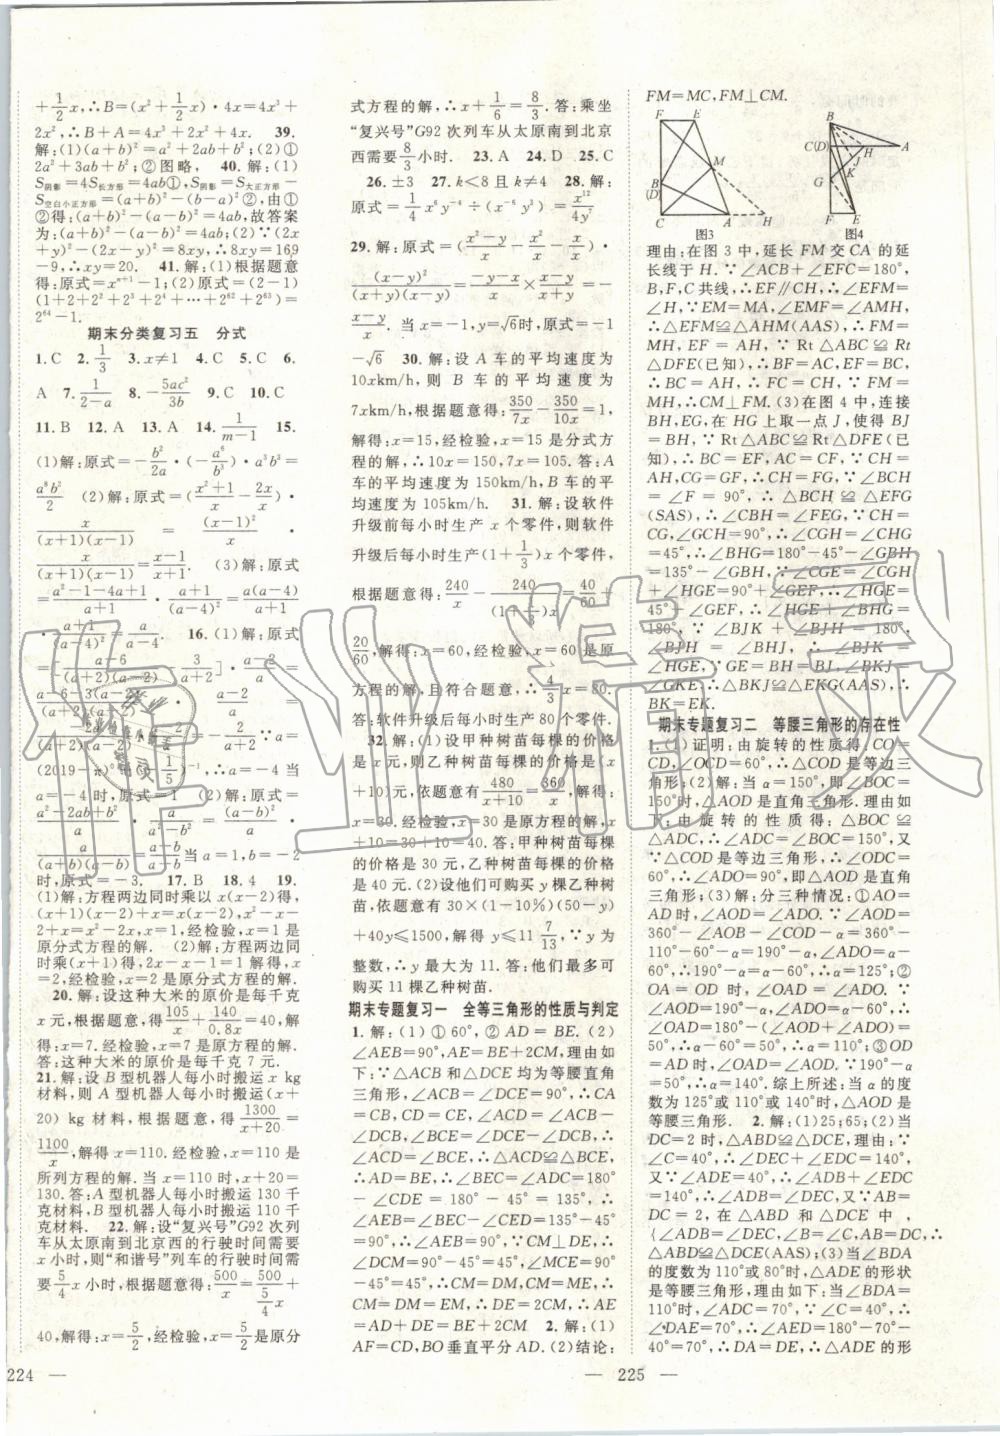 +1/2x,∴B=(x²+1/2x)·4x=4x³+
2x²,∴B+A=4x³+2x²+4x. 39.
解:(1)(a+b)²=a²+2ab+b²;(2)①
2a²+3ab+b²;②图略, 40.解:(1)
S阴影=4S长方形=4ab①,S阴影=S大正方形-
S空白小正方形=(a+b)²-(b-a)²②由①
②得:(a+b)²-(a-b)²=4ab,故答案
为:(a+b)²-(a-b)²=4ab;(2)∵(2x
+y)²-(2x-y)²=8xy,∴8xy=169
-9,∴xy=20. 41.解:(1)根据题意
得:原式=xⁿ⁺¹-1;(2)原式=(2-1)
(1+2+2²+2³+2⁴+…+2⁶²+2⁶³)=
2⁶⁴-1.
期末分类复习五 分式
1.C 2.1/3 3.x≠1 4.C 5.C 6.
A 7.1/(2-a) 8.-5ac²/3b 9.C 10.C
11.B 12.A 13.A 14.1/(m-1) 15.
(1)解:原式=-b²/2a·(-a⁶/b³)·a³b³=
a⁸b²/2 (2)解:原式=(x²+1/x-2x/x)·
x/((x+1)(x-1)) = (x-1)²/x ·
x/((x+1)(x-1))=(x-1)/(x+1). (3)解:原式
=(a²-1-4a+1)/(a+1)·(a+1)/(a-4)²=a(a-4)/(a+1)
·(a+1)/(a-4)²=a/(a-4). 16.(1)解:原式
当a=1,b=-2
时,原式=-3. 17.B 18.4 19.
(1)解:方程两边同时乘以x(x-2)得:
(x+1)(x-2)+x=x(x-2),x²-x-
2+x=x²-2x,x=1,经检验,x=1是
原分式方程的解. (2)解:方程两边同
时乘(x+1)得,2x-x-1=1 解得:x
=2,经检验,x=2是原分式方程的解.
20.解:设这种大米的原价是每千克
x元,根据题意得:105/x+140/0.8x=40,解
得:x=7.经检验,x=7是原方程的解.
答:这种大米的原价是每千克7元.
21.解:设B型机器人每小时搬运x kg
材料,则A型机器人每小时搬运(x+
20) kg材料,根据题意,得1300/(x+20)=
1100/x,解得x=110.经检验,x=110是
所列方程的解.当x=110时,x+20=
130.答:A型机器人每小时搬运130千
克材料,B型机器人每小时搬运110千
克材料. 22.解:设“复兴号”G92次列
车从太原南到北京西的行驶时间需要
x小时,则“和谐号”列车的行驶时间需
要5/4x小时,根据题意得:500/x=500/(5/4x)+
40,解得:x=5/2,经检验,x=5/2是原分
224 —
式方程的解,∴x+1/6=8/3.答:乘坐
“复兴号”G92次列车从太原南到北京
西需要8/3小时. 23.A 24.D 25.C
26.±3 27.k<8且k≠4 28.解:
原式=1/4x⁶y⁻⁴÷(x⁻⁶y³)=x¹²/4y⁷
29.解:原式=(x²-y/x-x/x)·
(x-y)/((x+y)(x-y))=(-y-x)/x×1/(x+y)·
(x-y)/x. 当x=1,y=√6时,原式=-1
-√6 30.解:设A车的平均速度为
10xkm/h,则B车的平均速度为
7xkm/h,根据题意得:350/7x-350/10x=1,
解得:x=15,经检验,x=15是分式方
程的解,∴10x=150,7x=105.答:A
车的平均速度为150km/h,B车的平
均速度为105km/h. 31.解:设软件
升级前每小时生产x个零件,则软件
升级后每小时生产(1+1/3)x个零件,
根据题意得:240/x-240/((1+1/3)x)=40/60+
20/60,解得:x=60,经检验,x=60是原
方程的解,且符合题意,∴4/3x=80.
答:软件升级后每小时生产80个零件.
32.解:(1)设甲种树苗每棵的价格
是x元,则乙种树苗每棵的价格是(x
+10)元,依题意有480/(x+10)=360/x,解得:
x=30.经检验,x=30是原方程的解,x
+10=30+10=40.答:甲种树苗每棵
的价格是30元,乙种树苗每棵的价
格是40元.(2)设他们可购买y棵乙种树
苗,依题意有30×(1-10%)(50-y)
+40y≤1500,解得y≤11 7/13,∵y为
整数,∴y最大为11.答:他们最多可
购买11棵乙种树苗.
期末专题复习一 全等三角形的性质与判定
1.解:(1)①60°,②AD=BE.(2)
∠AEB=90°,AE=BE+2CM,理由如
下:∵△ACB和△DCE均为等腰直角
三角形,∠ACB=∠DCE=90°,∴CA
=CB,CD=CE,∴∠ACB-∠DCB=
∠DCE-∠DCB,即∠ACD=∠BCE,∴
△ACD≌△BCE(SAS),
∴AD=BE,∴∠BEC=∠ADC=180°
-∠CDE=180°-45°=135°,∴
∠AEB=∠BEC-∠CED=135°-45°
=90°,∴∠AEB=90°;∵CM⊥DE,∴
∠DCM=90°-45°=45°,∠MCE=90°
-45°=45°,∴CM=DM,CM=ME,∴
CM=DM=EM,∴DE=2CM,∴AE
=AD+DE=BE+2CM 2.解:(1)
AF=CD;BM垂直平分AD.(2)结论:
— 225 —
FM=MC,FM⊥CM.
图3
图4
理由:在图3中,延长FM交CA的延
长线于H.∵∠ACB+∠EFC=180°,
B,F,C共线,∴EF∥CH,∴∠E=∠HAM,
∵EM=MA,∠EMF=∠AMH,
∴△EMF≌△AHM(AAS),∴FM=
MH,EF=AH,∵Rt△ABC≌Rt
△DFE(已知),∴BF=AC,EF=BC,
∴BC=AH,∴FC=CH,∵FM=
MH,∴CM⊥FM.(3)在图4中,连接
BH,EG,在HG上取一点J,使得BJ
=BH,∵Rt△ABC≌Rt△DFE(已
知),∴BC=EF,AC=BF,∵CH=
AH,CG=GF,∴CH=FG,∵∠BCH
=∠F=90°,∴△BCH≌△EFG
(SAS),∴∠CBH=∠FEG,∵CH=
CG,∠HCG=90°,∴∠CGH=∠CHG
=45°,∴∠BHG=180°-45°-∠GBH
=135°-∠GBH,∵∠CGE=∠CGH
+∠HGE=90°+∠GEF,∴∠HGE=
45°+∠GEF,∴∠HGE+∠BHG=
180°,∵∠BJK+∠BJH=180°,
∠BJH=∠BHJ,∴∠BJK=
∠HGE,∵GE=BH=BJ,∠BKJ=
∠GKE,∴△BKJ≌△EKG(AAS),∴
BK=EK.
期末专题复习二 等腰三角形的存在性
1.(1)证明:由旋转的性质得,CO=
CD,∠OCD=60°,∴△COD是等边三
角形;(2)解:当α=150°,即∠BOC=
150°时,△AOD是直角三角形.理由如
下:由旋转的性质得:△BOC≌
△ADC,∴∠ADC=∠BOC=150°,又
∵△COD是等边三角形,∴∠ODC=
60°,∴∠ADO=90°,即△AOD是直角
三角形;(3)解:分三种情况:①AO=
AD时,∠AOD=∠ADO.∵∠AOD=
360°-∠AOB-∠COD-α=360°-
110°-60°-α=190°-α,∠ADO=α-
60°,∴190°-α=α-60°,∴α=125°;②
OA=OD时,∠OAD=∠ADO.∵
∠OAD=180°-(∠AOD+∠ADO)=
50°,∴α-60°=50°,∴α=110°;③OD
=AD时,∠OAD=∠AOD.∴190°-α
=50°,∴α=140°.综上所述:当α的度
数为125°或110°或140°时,△AOD是
等腰三角形. 2.解:(1)25;65;(2)当
DC=2时,△ABD≌△DCE,理由:∵
∠C=40°,∴∠DEC+∠EDC=140°,
又∵∠ADE=40°,∴∠ADB+∠EDC
=140°,∴∠ADB=∠DEC,又∵AB=
DC=2,∴在△ABD和△DCE中,
{∠ADB=∠DEC,∠B=∠C,AB=DC,∴
△ABD≌△DCE(AAS);(3)当∠BDA
的度数为110°或80°时,△ADE的形状
是等腰三角形,理由如下:当∠BDA=
110°时,∠ADC=70°,∵∠C=40°,∴
∠DAE=70°,∴∠AED=180°-70°-
40°=70°,∴DA=DE,∴△ADE的形